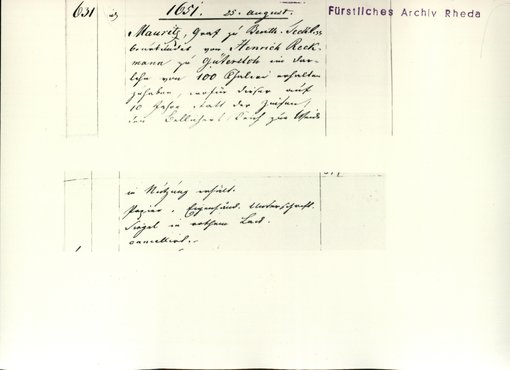 631
1651. 25. August.
Fürstliches Archiv Rheda
Mauritz, Graf zu Benth. Tecklbg
beurkundet von Henrich Reck-
mann zu Gütersloh ein Dar-
lehn von 100 Thalern erhalten
zu haben, wofür dieser auf
10 Jahre statt der Zinsen,
den zur Weide
in Nutzung erhält.
Papier. Eigenhänd. Unterschrift.
Siegel in rothem Lack.
cancellirt.